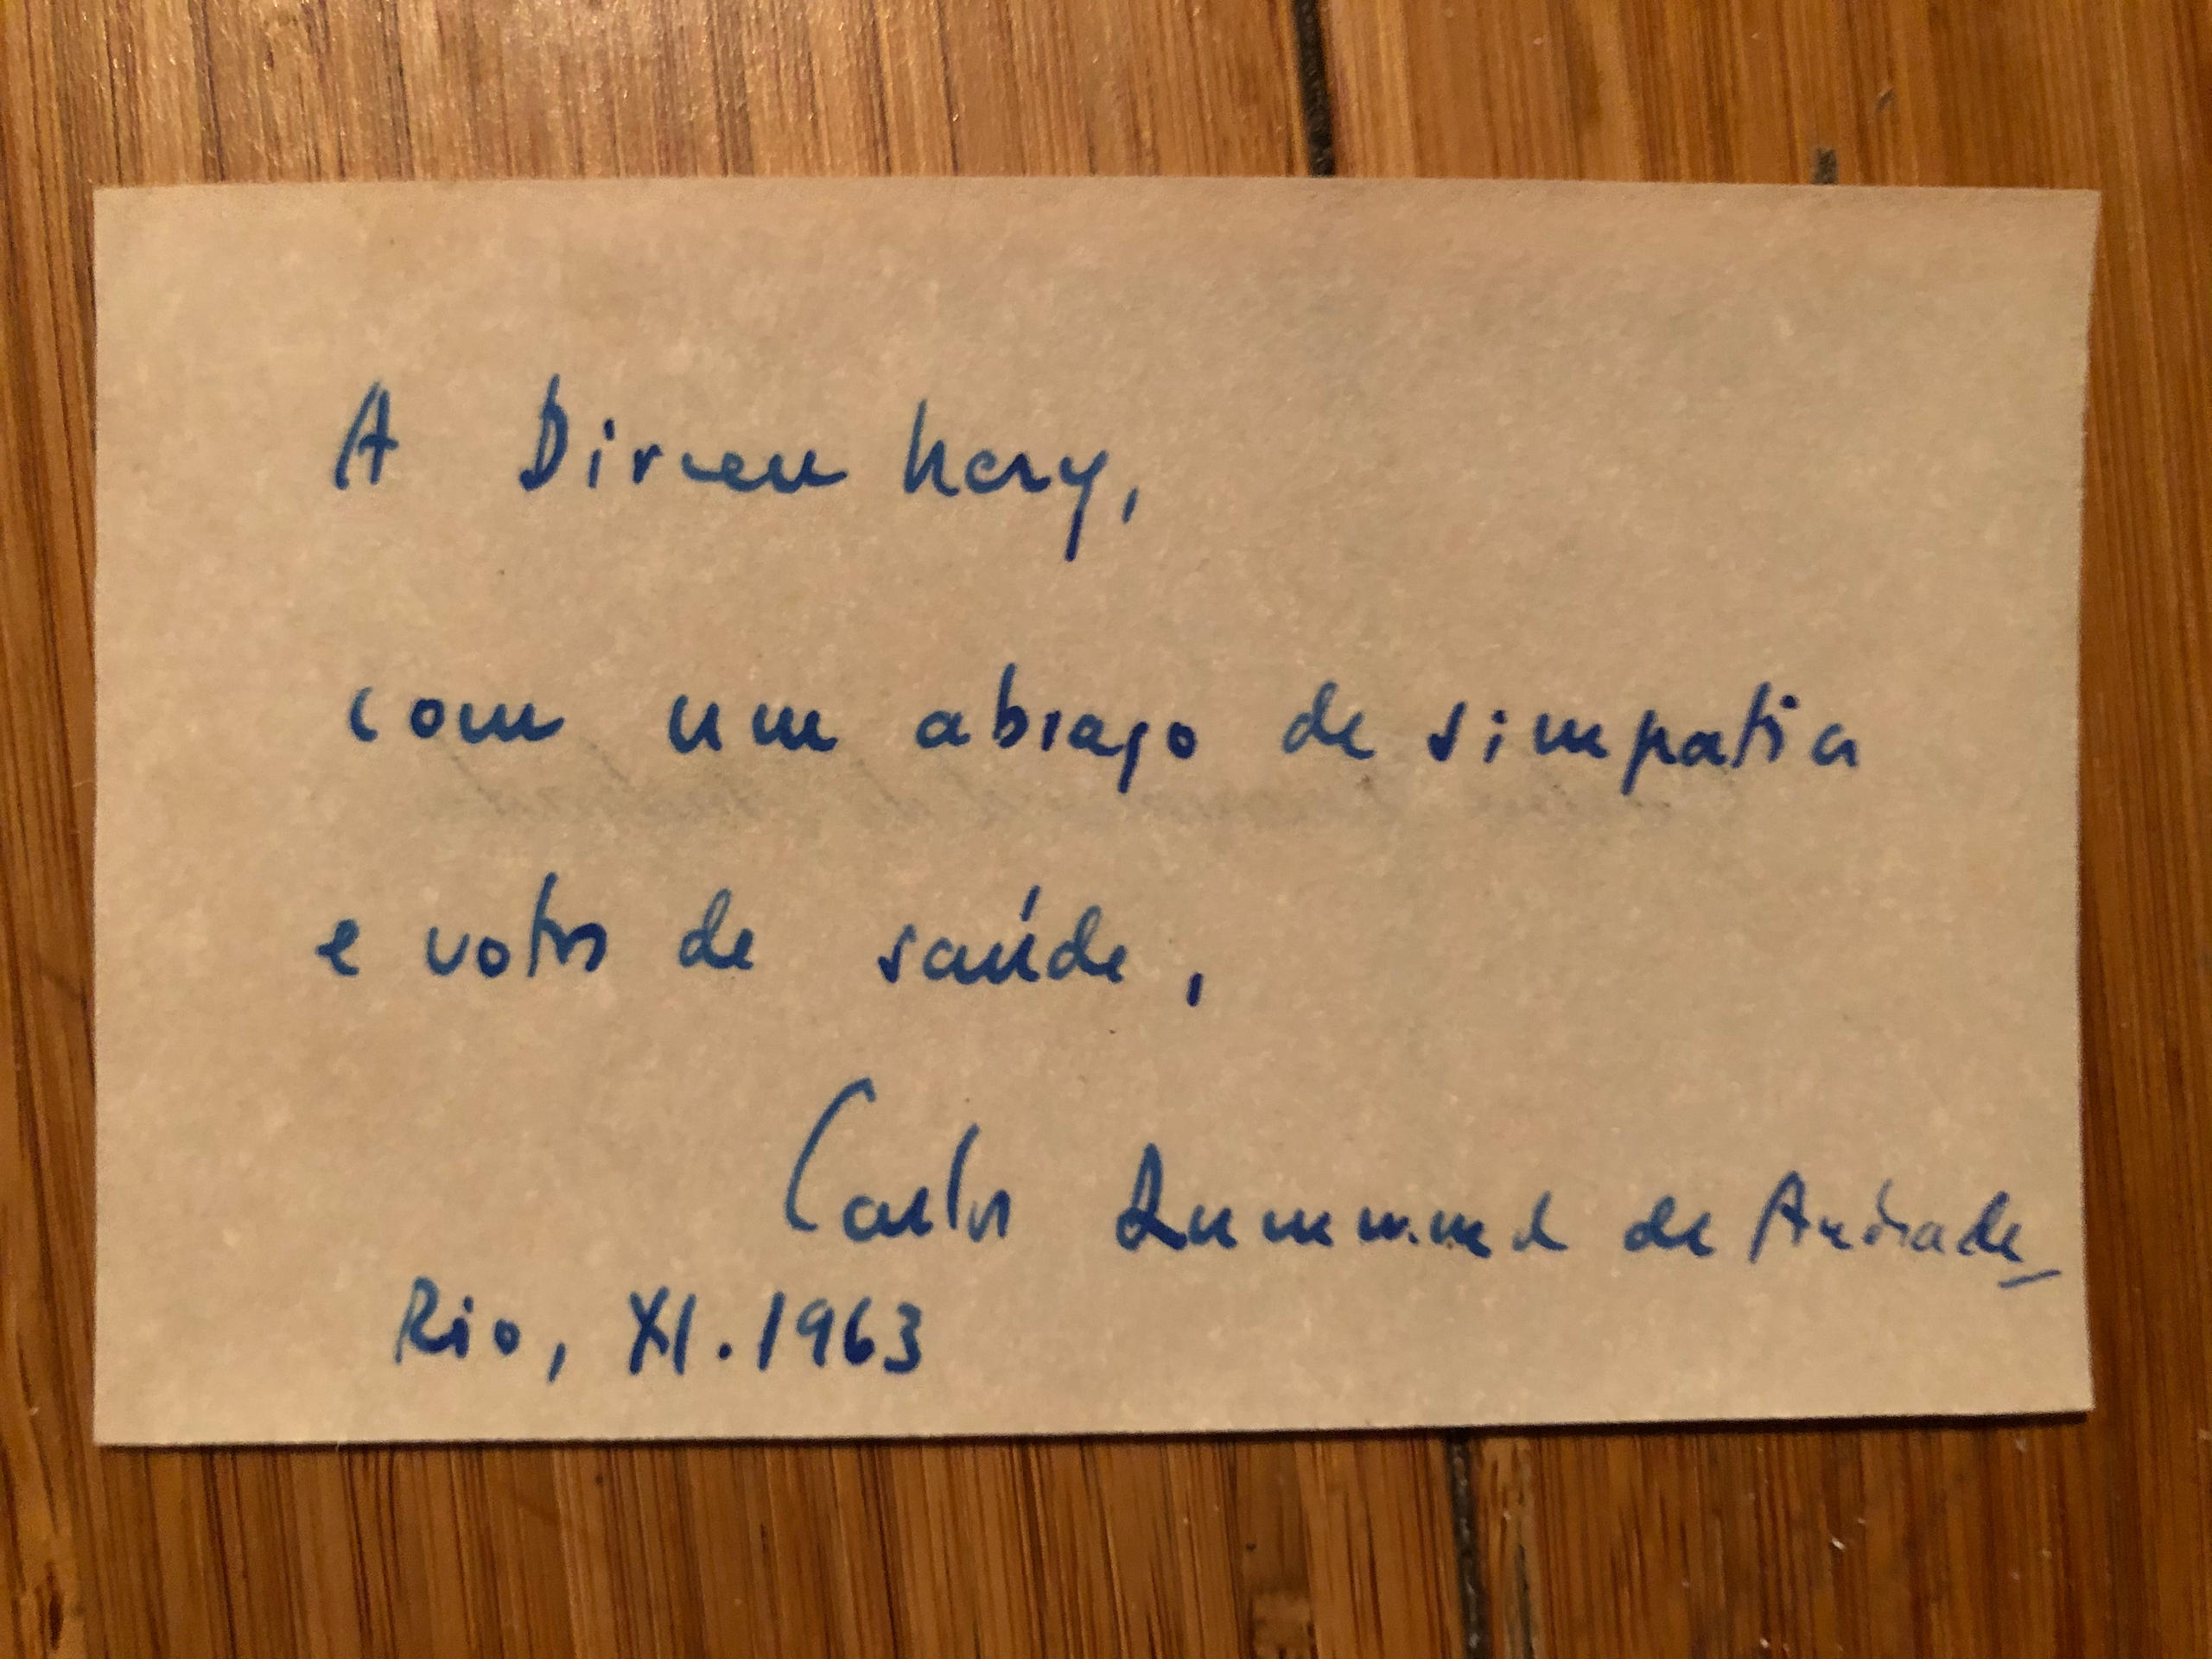 A Dirceu Nery,
com um abraço de simpatia
e votos de saúde,
Carlos Drummond de Andrade
Rio, XI.1963